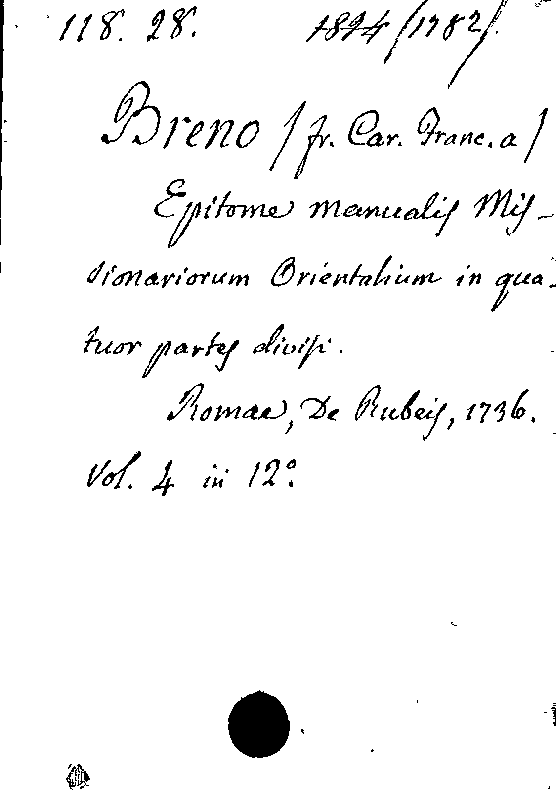 118. 28. 1824/1782/.
Breno / fr. Car. Franc. a /
Epitome manualis Mis-
sionariorum Orientalium in qua-
tuor partes divisi.
Romae, De Rubeis, 1736.
Vol. 4 in 12°